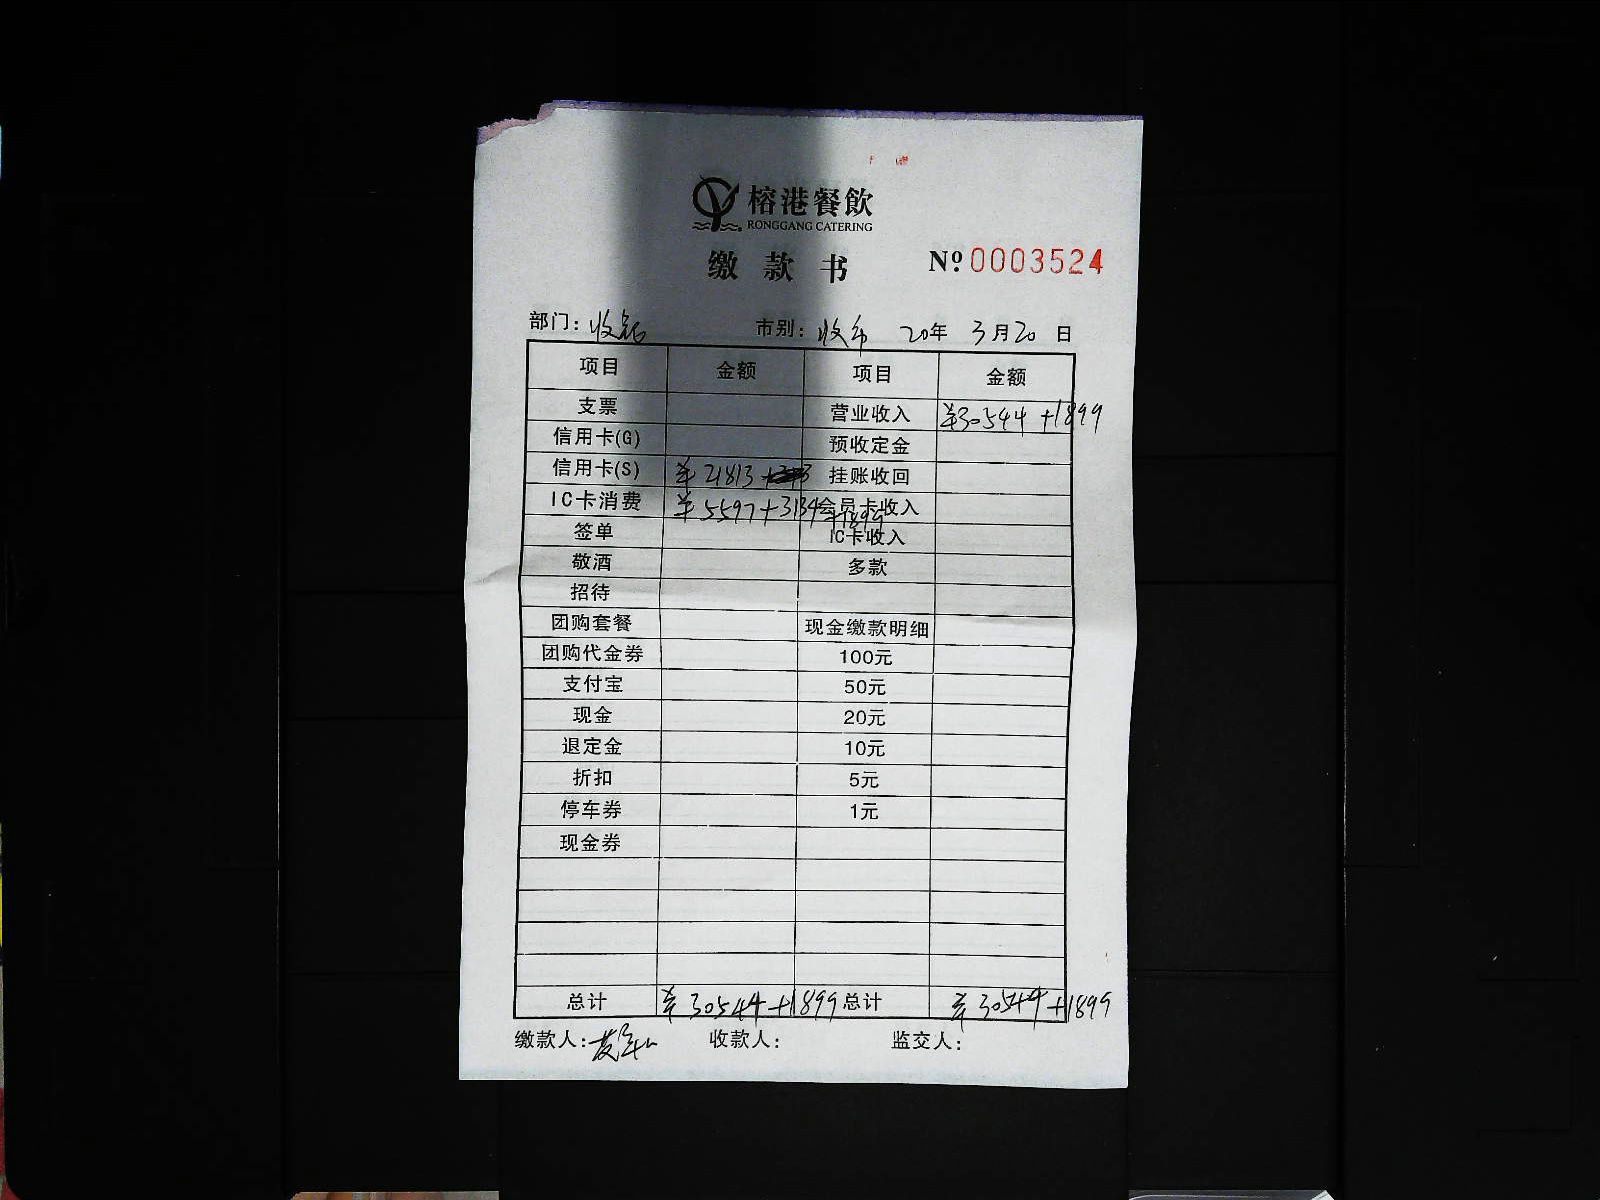 榕港餐飲
RONGGANG CATERING
缴款书 № 0003524
部门：收银 市别：收市 20年 3月20日
项目 金额 项目 金额
支票 营业收入 ¥30544+1899
信用卡(G) 预收定金
信用卡(S) ¥21813 挂账收回
IC卡消费 ¥5597+3134 会员卡收入
+1899
签单 IC卡收入
敬酒 多款
招待
团购套餐 现金缴款明细
团购代金券 100元
支付宝 50元
现金 20元
退定金 10元
折扣 5元
停车券 1元
现金券
总计 ¥30544+1899 总计 ¥30544+1899
缴款人： 收款人： 监交人：